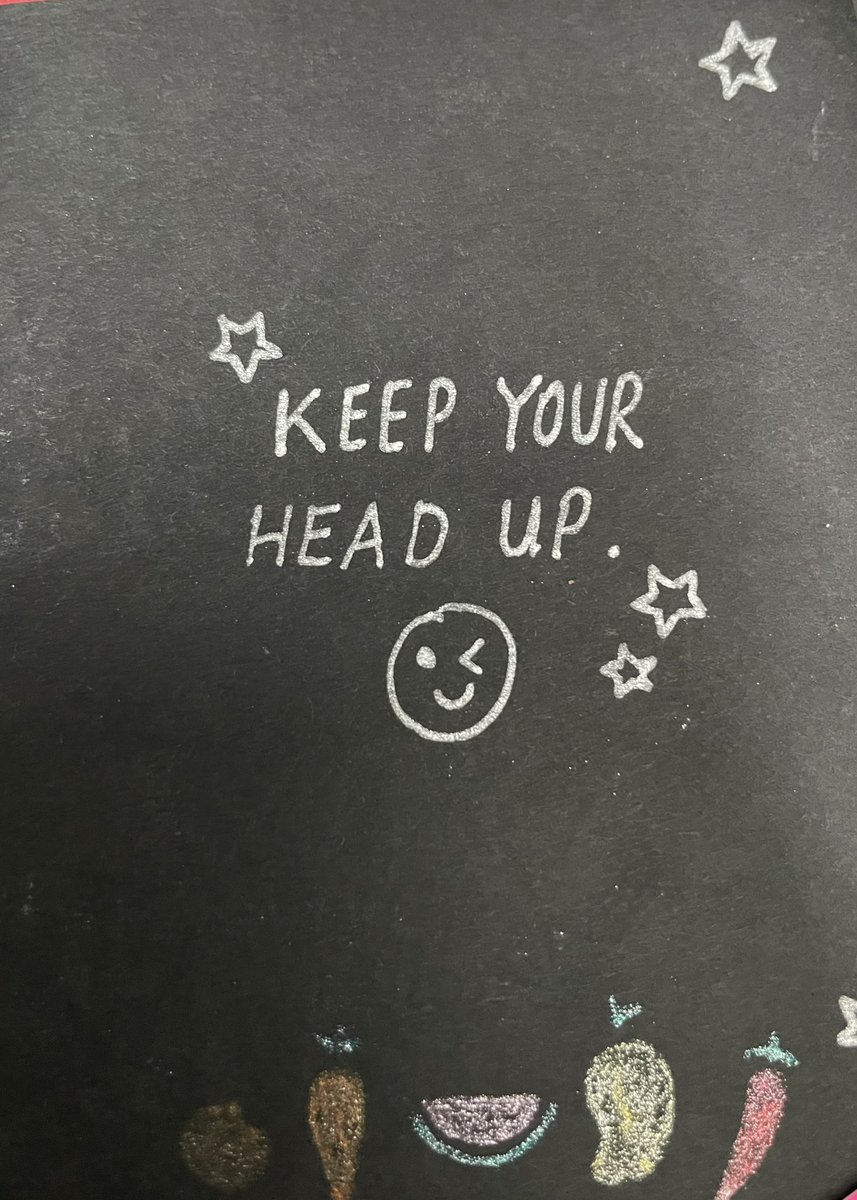 KEEP YOUR
HEAD UP.